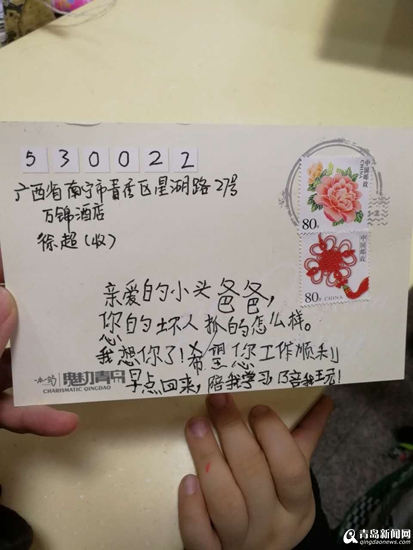 530022
广西省南宁市青秀区星湖路27号
万锦酒店
徐超(收)
中国邮政
CHINA
80分
中国邮政
80分 CHINA
亲爱的小头爸爸,
您的坏人抓的怎么样。
我想你了!希望您工作顺利
早点回来,陪我学习陪我玩!
魅力青岛
CHARISMATIC QINGDAO
青岛新闻网
qingdaonews.com